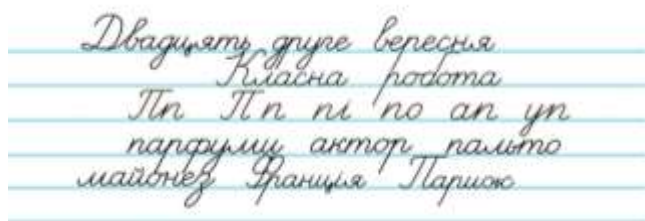 Двадцять друге вересня
Класна робота
Пп Пп пі по ап уп
парфуми актор пальто
майонез Франція Париж